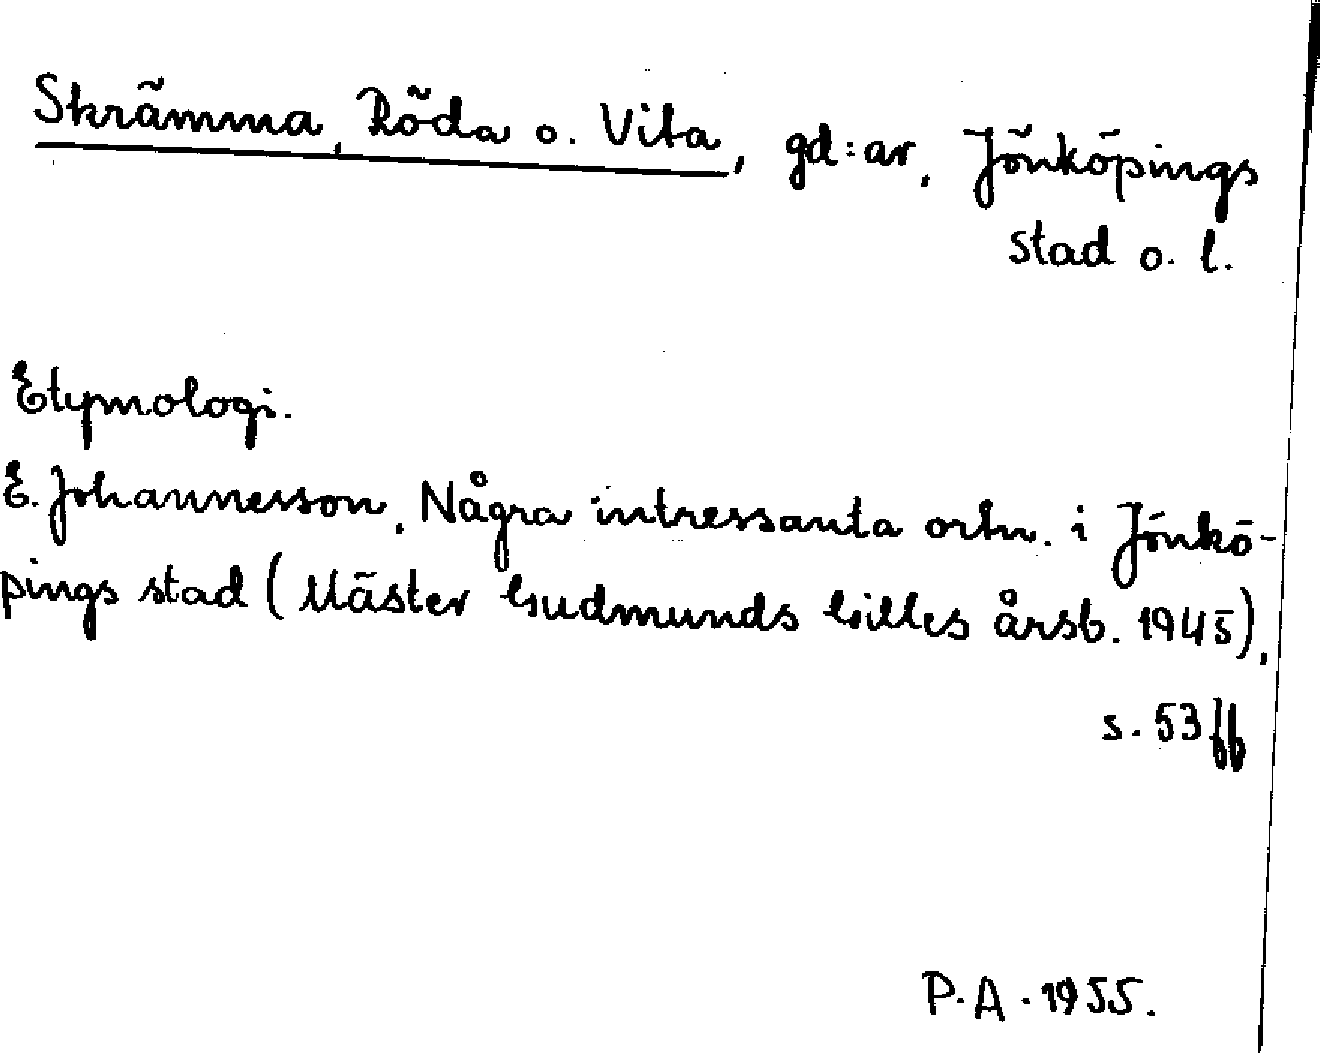 Skrämma, Röda o. Vita, gd:ar, Jönköpings
stad o. l.
Etymologi.
E. Johannesson, Några intressanta ortn. i Jönkö-
pings stad (Mäster Gudmunds Gilles årsb. 1945),
s. 53 ff
P. A. 1955.